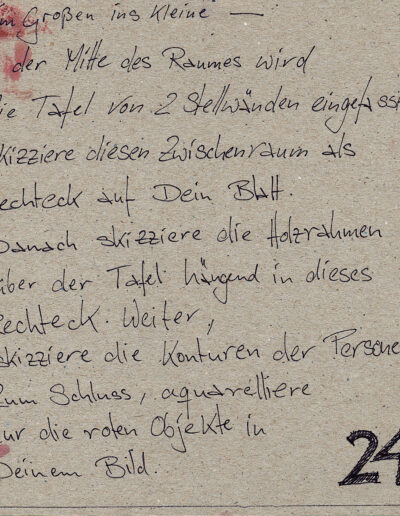 im Großen ins Kleine —
der Mitte des Raumes wird
ie Tafel von 2 Stellwänden eingefasst
kizziere diesen Zwischenraum als
echteck auf Dein Blatt.
Danach skizziere die Holzrahmen
über der Tafel hängend in dieses
Rechteck. Weiter,
skizziere die Konturen der Persone
Zum Schluss, aquarelliere
nur die roten Objekte in
Deinem Bild.
24